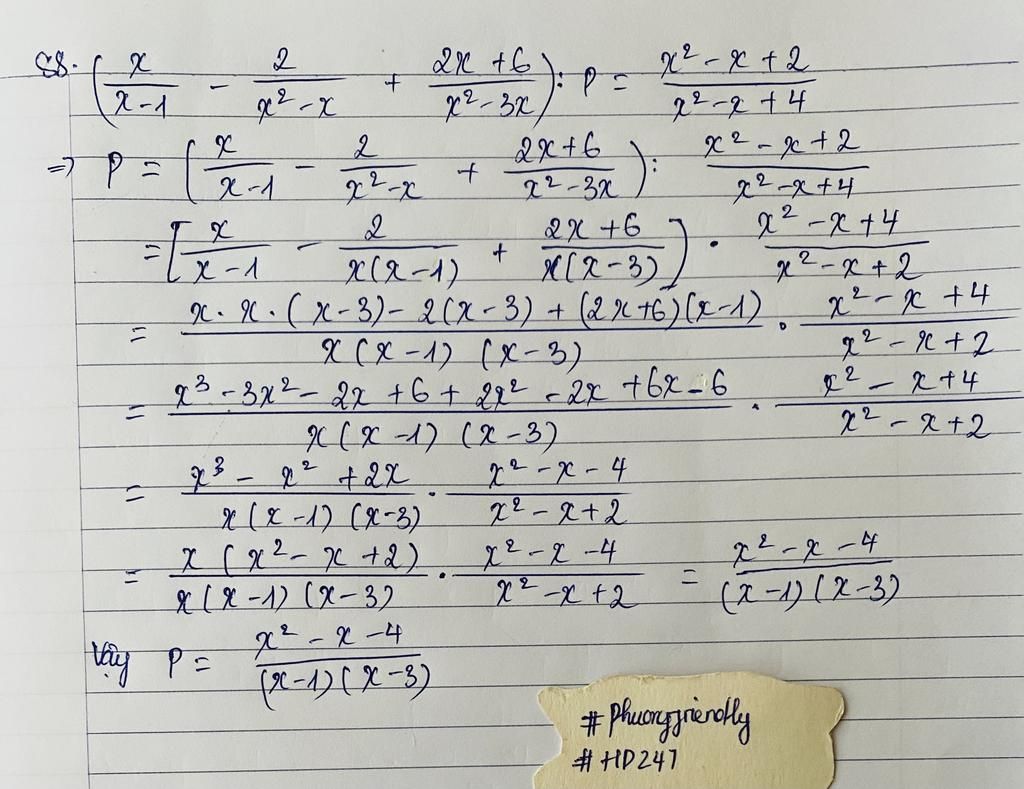 S8. (x/(x-1) - 2/(x² - x) + (2x + 6)/(x² - 3x)) : P = (x² - x + 2)/(x² - x + 4)
=> P = (x/(x-1) - 2/(x² - x) + (2x + 6)/(x² - 3x)) : (x² - x + 2)/(x² - x + 4)
= [x/(x-1) - 2/(x(x-1)) + (2x + 6)/(x(x-3))] · (x² - x + 4)/(x² - x + 2)
= (x·x·(x-3) - 2(x-3) + (2x+6)(x-1))/(x(x-1)(x-3)) · (x² - x + 4)/(x² - x + 2)
= (x³ - 3x² - 2x + 6 + 2x² - 2x + 6x - 6)/(x(x-1)(x-3)) · (x² - x + 4)/(x² - x + 2)
= (x³ - x² + 2x)/(x(x-1)(x-3)) · (x² - x - 4)/(x² - x + 2)
= (x(x² - x + 2))/(x(x-1)(x-3)) · (x² - x - 4)/(x² - x + 2) = (x² - x - 4)/((x-1)(x-3))
Vậy P = (x² - x - 4)/((x-1)(x-3))
#Phuongfriendly
#HD247